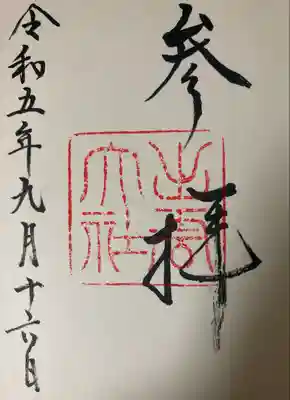 参拝
出雲
大社
令和五年九月十六日